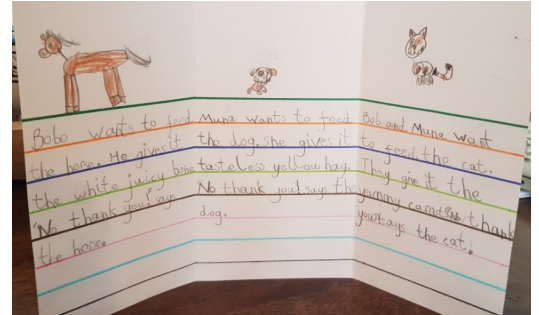 Bobo wants to feed
the horse. He gives it
the white juicy bone
"No thank you!" says
the horse.
Muna wants to feed
the dog. she gives it
tasteless yellow hay.
No thank you! says the
dog.
Bob and Muna want
to feed the cat.
They give it the
yummy No thank
you says the cat.